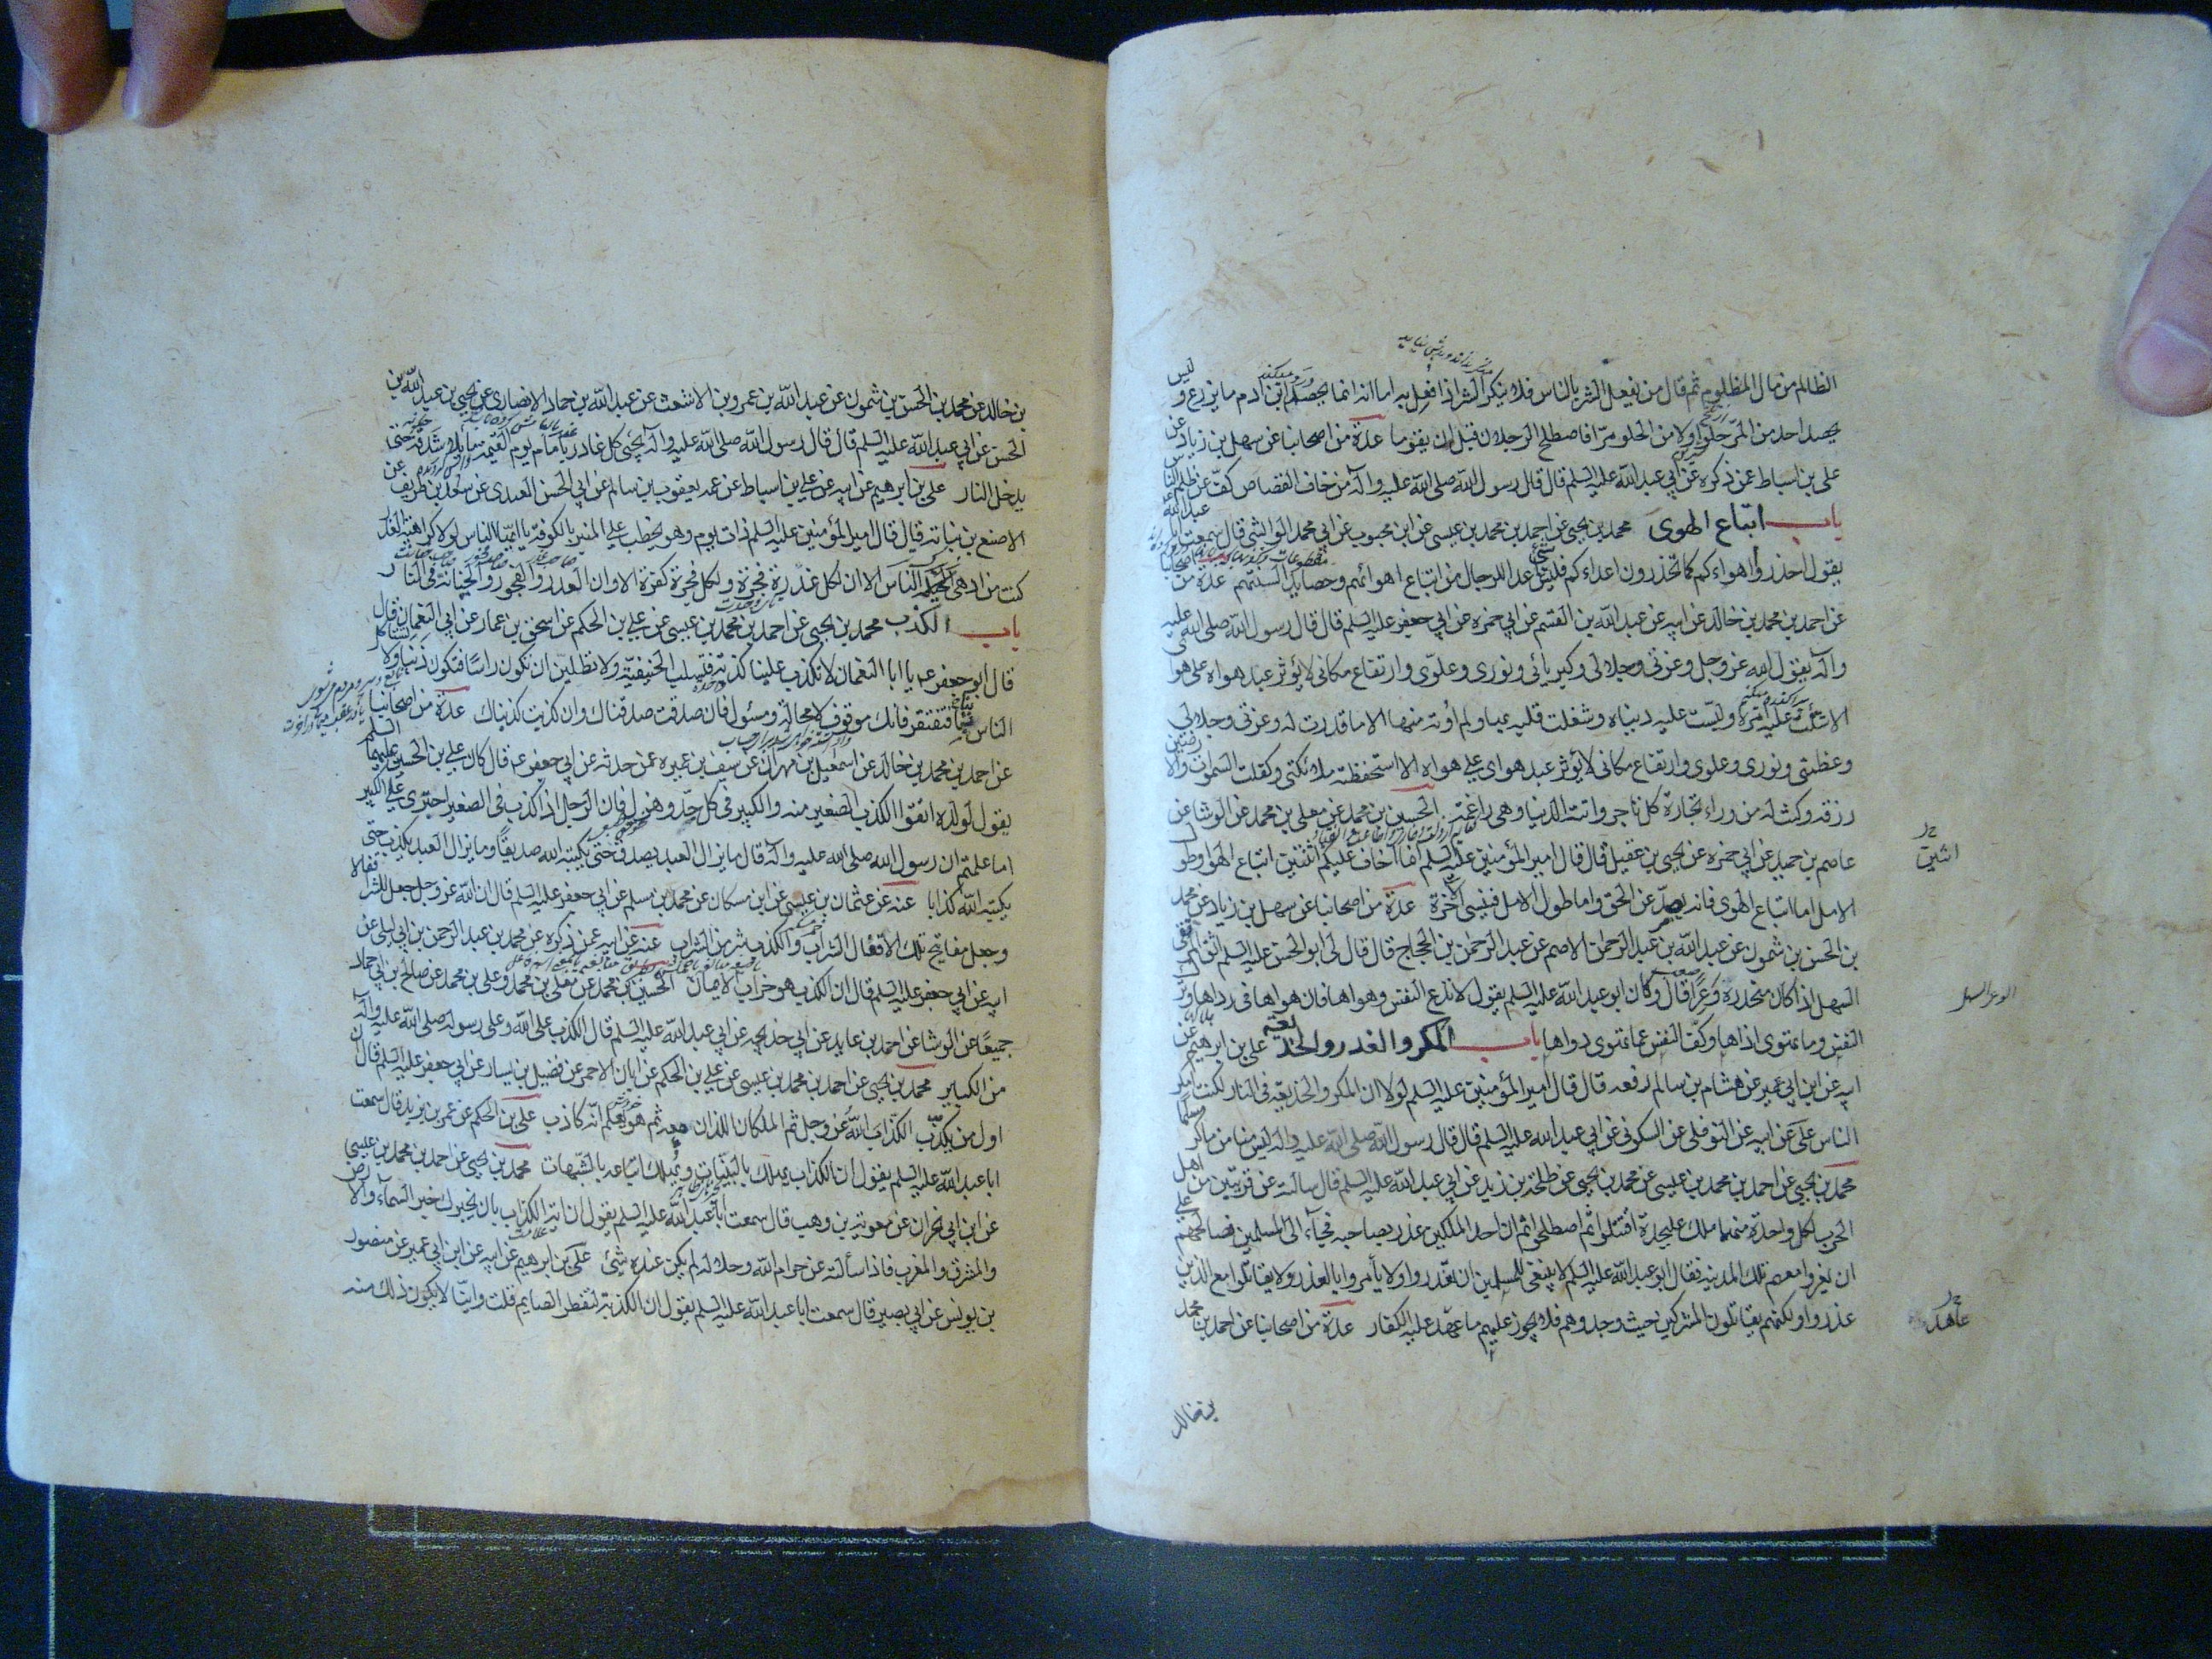 الظالم من مال المظلوم ثم قال من يفعل الشر بالناس فلا ينكر الشر اذا فعل به اما انه انما يحصد ابن ادم ما يزرع و ليس
يحصد احد من المر حلوا ولا من الحلو مرا فاصطلح الرجلان قبل ان يقوما عدة من اصحابنا عن سهل بن زياد عن
على بن اسباط عمن ذكره عن ابي عبد الله عليه السلم قال قال رسول الله صلى الله عليه وآله من خاف القصاص كف عن ظلم الناس
باب اتباع الهوى محمد بن يحيى عن احمد بن محمد بن عيسى عن ابن محبوب عن ابي محمد الوابشي قال سمعت ابا عبد الله
يقول احذروا اهواءكم كما تحذرون اعداءكم فليس شئ اعدا للرجال من اتباع اهوائهم وحصايد السنتهم عدة من اصحابنا
عن احمد بن محمد بن خالد عن ابيه عن عبد الله بن القسم عن ابي حمزه عن ابي جعفر عليه السلم قال قال رسول الله صلى الله عليه
وآله يقول الله عز وجل وعزتي وجلالي وكبريائي ونوري وعلوي وارتفاع مكاني لا يؤثر عبد هواه على هواى
الا شتت عليه امره ولبست عليه دنياه وشغلت قلبه بها ولم أوته منها الا ما قدرت له وعزتي وجلالي
وعظمتي ونوري وعلوي وارتفاع مكاني لا يؤثر عبد هواي على هواه الا استحفظته ملائكتي وكفلت السموات والارضين
رزقه وكنت له من وراء تجارة كل تاجر واتته الدنيا وهي راغمة الحسين بن محمد عن معلى بن محمد عن الوشا عن
عاصم بن حميد عن ابي حمزه عن يحيى بن عقيل قال قال امير المؤمنين عليه السلم انما اخاف عليكم اثنتين اتباع الهوا وطول
الامل اما اتباع الهوى فانه يصد عن الحق واما طول الامل فينسى الآخرة عدة من اصحابنا عن سهل بن زياد عن محمد
بن الحسن بن شمون عن عبد الله بن عبد الرحمن الاصم عن عبد الرحمن بن الحجاج قال قال لي ابو الحسن عليه السلم اتق المرتقى
السهل اذا كان منحدره وعرا قال وكان ابو عبد الله عليه السلم يقول لا تدع النفس وهواها فان هواها في رداها وترك
النفس وما تهوى اذاها وكف النفس عما تهوى دواها باب المكر والغدر والخديعة على بن ابرهيم عن
ابيه عن ابن ابي عمير عن هشام بن سالم رفعه قال قال امير المؤمنين عليه السلم لولا ان المكر والخديعة في النار لكنت امكر
الناس على عن ابيه عن النوفلي عن السكوني عن ابي عبد الله عليه السلم قال قال رسول الله صلى الله عليه وآله ليس منا من ماكر مسلما
محمد بن يحيى عن احمد بن محمد بن عيسى عن محمد بن يحيى عن طلحة بن زيد عن ابي عبد الله عليه السلم قال سألته عن قريتين من اهل
الحرب لكل واحدة منهما ملك على حدة اقتتلوا ثم اصطلحوا ثم ان احد الملكين غدر بصاحبه فجاء الى المسلمين فصالحهم على
ان يغزوا معهم تلك المدينه فقال ابو عبد الله عليه السلم لا ينبغي للمسلمين ان يغدروا ولا يأمروا بالغدر ولا يقاتلوا مع الذين
غدروا ولكنهم يقاتلون المشركين حيث وجدوهم فلا يجوز عليهم ما عهد عليه الكفار عدة من اصحابنا عن احمد بن محمد
اثنين
الوعر السهل
عاهد
بن خالد
بن خالد عن محمد بن الحسن بن شمون عن عبد الله بن عمرو بن الاشعث عن عبد الله بن حماد الانصارى عن يحيى بن عبد الله بن
الحسن عن ابي عبد الله عليه السلم قال قال رسول الله صلى الله عليه وآله يجئ كل غادر بامام يوم القيمة مايلا شدقه حتى
يدخل النار على بن ابرهيم عن ابيه عن علي بن اسباط عن عمه يعقوب بن سالم عن ابي الحسن العبدى عن سعد بن طريف عن
الاصبغ بن نباته قال قال امير المؤمنين عليه السلم ذات يوم وهو يخطب على المنبر بالكوفة يا ايها الناس لولا كراهية الغدر
كنت من ادهى الناس الا ان لكل غدرة فجرة ولكل فجرة كفرة الا وان الغدر والفجور والخيانة في النار
باب الكذب محمد بن يحيى عن احمد بن محمد بن عيسى عن علي بن الحكم عن اسحق بن عمار عن ابي النعمان قال
قال ابو جعفر ع يا ابا النعمان لا تكذب علينا كذبة فتسلب الحنيفية ولا تطلبن ان تكون راسا فتكون ذنبا ولا تستاكل
الناس بنا فتفتقر فانك موقوف لا محالة ومسئول فان صدقت صدقناك وان كذبت كذبناك عدة من اصحابنا
عن احمد بن محمد بن خالد عن اسمعيل بن مهران عن سيف بن عميره عمن حدثه عن ابي جعفر ع قال كان علي بن الحسين عليهما السلم
يقول لولده اتقوا الكذب الصغير منه والكبير في كل جد وهزل فان الرجل اذا كذب في الصغير اجترى على الكبير
اما علمتم ان رسول الله صلى الله عليه وآله قال ما يزال العبد يصدق حتى يكتبه الله صديقا وما يزال العبد يكذب حتى
يكتبه الله كذابا عنه عن عثمان بن عيسى عن ابن مسكان عن محمد بن مسلم عن ابي جعفر عليه السلم قال ان الله عز وجل جعل للشر اقفالا
وجعل مفاتيح تلك الاقفال الشراب والكذب شر من الشراب عنه عن ابيه عمن ذكره عن محمد بن عبد الرحمن بن ابي ليلى عن
ابيه عن ابي جعفر عليه السلم قال ان الكذب هو خراب الايمان الحسين بن محمد عن معلى بن محمد وعلى بن محمد عن صالح بن ابي حماد
جميعا عن الوشا عن احمد بن عايد عن ابي خديجه عن ابي عبد الله عليه السلم قال الكذب على الله وعلى رسوله صلى الله عليه وآله
من الكباير محمد بن يحيى عن احمد بن محمد بن عيسى عن علي بن الحكم عن ابان الاحمر عن فضيل بن يسار عن ابي جعفر عليه السلم قال ان
اول من يكذب الكذاب الله عز وجل ثم الملكان اللذان معه ثم هو يعلم انه كاذب على بن الحكم عن عمر بن يزيد قال سمعت
ابا عبد الله عليه السلم يقول ان الكذاب يهلك بالبينات ويهلك اتباعه بالشبهات محمد بن يحيى عن احمد بن محمد بن عيسى
عن ابن ابي نجران عن معوية بن وهب قال سمعت ابا عبد الله عليه السلم يقول ان اية الكذاب بان يخبرك خبر السماء والارض
والمشرق والمغرب فاذا سألته عن حرام الله وحلاله لم يكن عنده شئ على بن ابرهيم عن ابيه عن ابن ابي عمير عن منصور
بن يونس عن ابي بصير قال سمعت ابا عبد الله عليه السلم يقول ان الكذبة لتفطر الصايم قلت واينا لا يكون ذلك منه